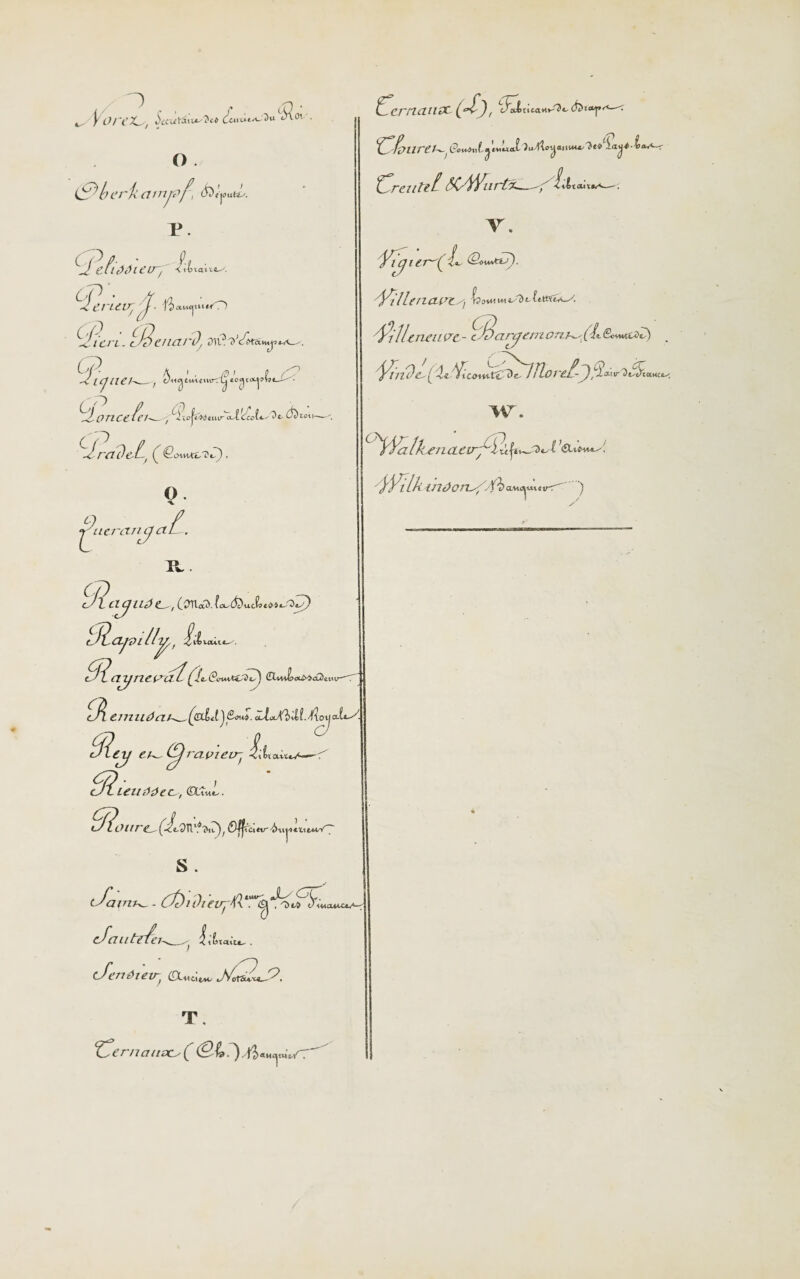 Norez, Secrétaire des Ecuries du Roi.
O.
Oberkampf, Député.
P.
Pelissier, Libraire.
Perier J. Banquier
Pieri-Bénard, Md. d'Estampes.
Piquet, Ingénieur-Géographe.
Poncelet, Profeseur à l'Ecole de Droit.
Pradel, (Comte de).
Q.
Querangal.
R.
Raguse, (Mal. la Duchesse de)
Rapilly, Libraire.
Rayneval (le Comte de) Ambassadeur
Remusat (Abel) Cons. à la Bibl. Royale
Rey et Gravier, Libraires.
Rieussec, Aîné.
Roure (le Mis. du), Officier Supérieur
S.
Saint-Didier, R. G. des Finances.
Sautelet, Libraire.
Sensier, Ancien Notaire.
T.
Ternaux (Bn.) Banquier
Ternaux (L), Fabricant de Draps.
Thuret, Consul général du Royaume des Pays-Bas.
Treutel & Wurtz, Libraires.
V.
Vigier (le Comte).
Villenave, homme de lettres.
Villeneuve-Bargemont, (le Comte de)
Vinde (le Vicomte de Morel-), Pair de France.
W.
Walkenaer, Préfet de l'Aisne.
Wilkinson, Banquier